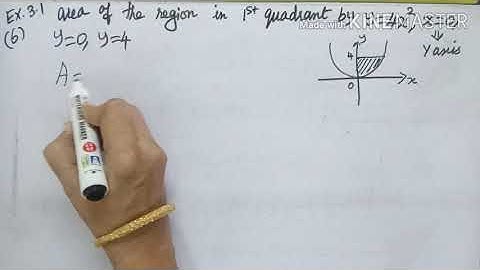 Ex. 3.1 area of the region in 1st quadrant by y=4x², x=0
Made with KINEMASTER
(6) y=0, y=4
↓
Y axis
A =
y
4
0
x